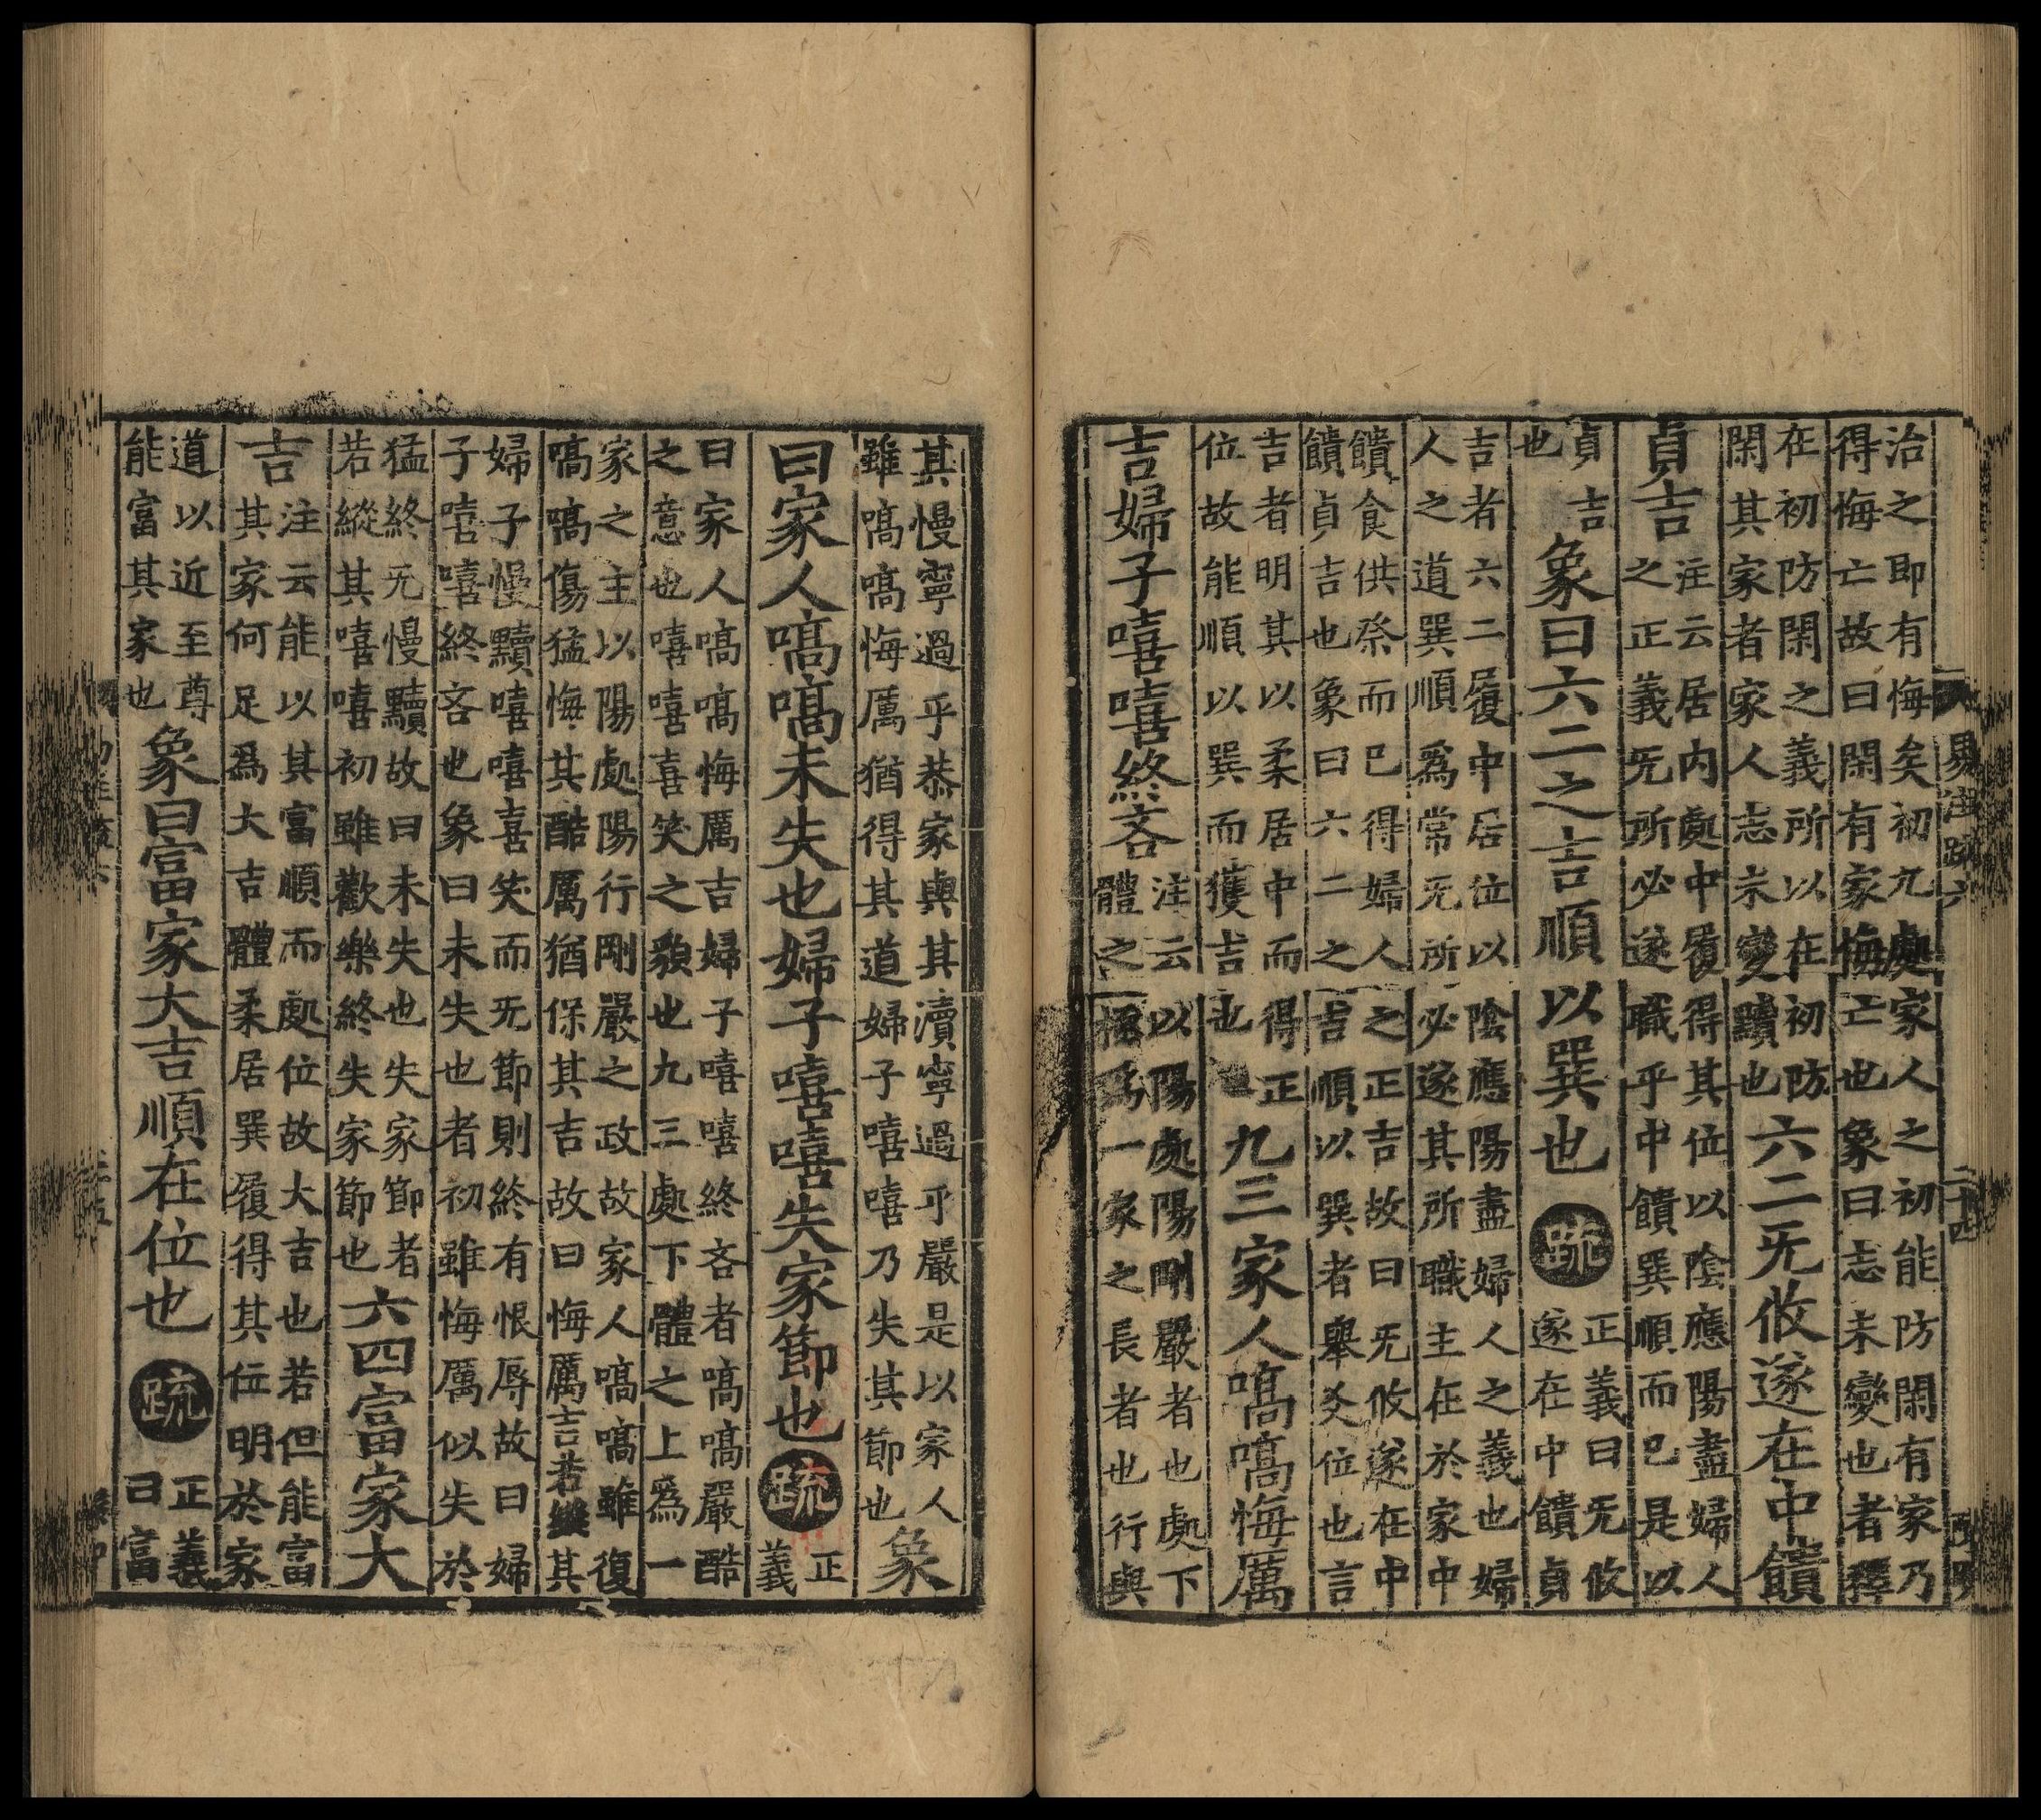 易注疏六 二十四
治之即有悔矣初九處家人之初能防閑有家乃
得悔亡故曰閑有家悔亡也象曰志未變也者釋
在初防閑之義所以在初防
閑其家者家人志未變黷也
六二无攸遂在中饋
貞吉
注云居内處中履得其位以陰應陽盡婦人
之正義无所必遂職乎中饋巽順而已是以
貞吉
也
象曰六二之吉順以巽也
疏
正義曰无攸
遂在中饋貞
吉者六二履中居位以陰應陽盡婦人之義也婦
人之道巽順爲常无所必遂其所職主在於家中
饋食供祭而已得婦人之正吉故曰无攸遂在中
饋貞吉也象曰六二之吉順以巽者舉爻位也言
吉者明其以柔居中而得正
位故能順以巽而獲吉也
九三家人嗃嗃悔厲
吉婦子嘻嘻終吝
注云以陽處陽剛嚴者也處下
體之極爲一家之長者也行與
其慢寧過乎恭家與其瀆寧過乎嚴是以家人
雖嗃嗃悔厲猶得其道婦子嘻嘻乃失其節也
象
曰家人嗃嗃未失也婦子嘻嘻失家節也
疏
正
義
曰家人嗃嗃悔厲吉婦子嘻嘻終吝者嗃嗃嚴酷
之意也嘻嘻喜笑之貌也九三處下體之上爲一
家之主以陽處陽行剛嚴之政故家人嗃嗃雖復
嗃嗃傷猛悔其酷厲猶保其吉故曰悔厲吉若縱其
婦子慢黷嘻嘻喜笑而无節則終有恨辱故曰婦
子嘻嘻終吝也象曰未失也者初雖悔厲似失於
猛終无慢黷故曰未失也失家節者
若縱其嘻嘻初雖歡樂終失家節也
六四富家大
吉
注云能以其富順而處位故大吉也若但能富
其家何足爲大吉體柔居巽履得其位明於家
道以近至尊
能富其家也
象曰富家大吉順在位也
疏
正義
曰富